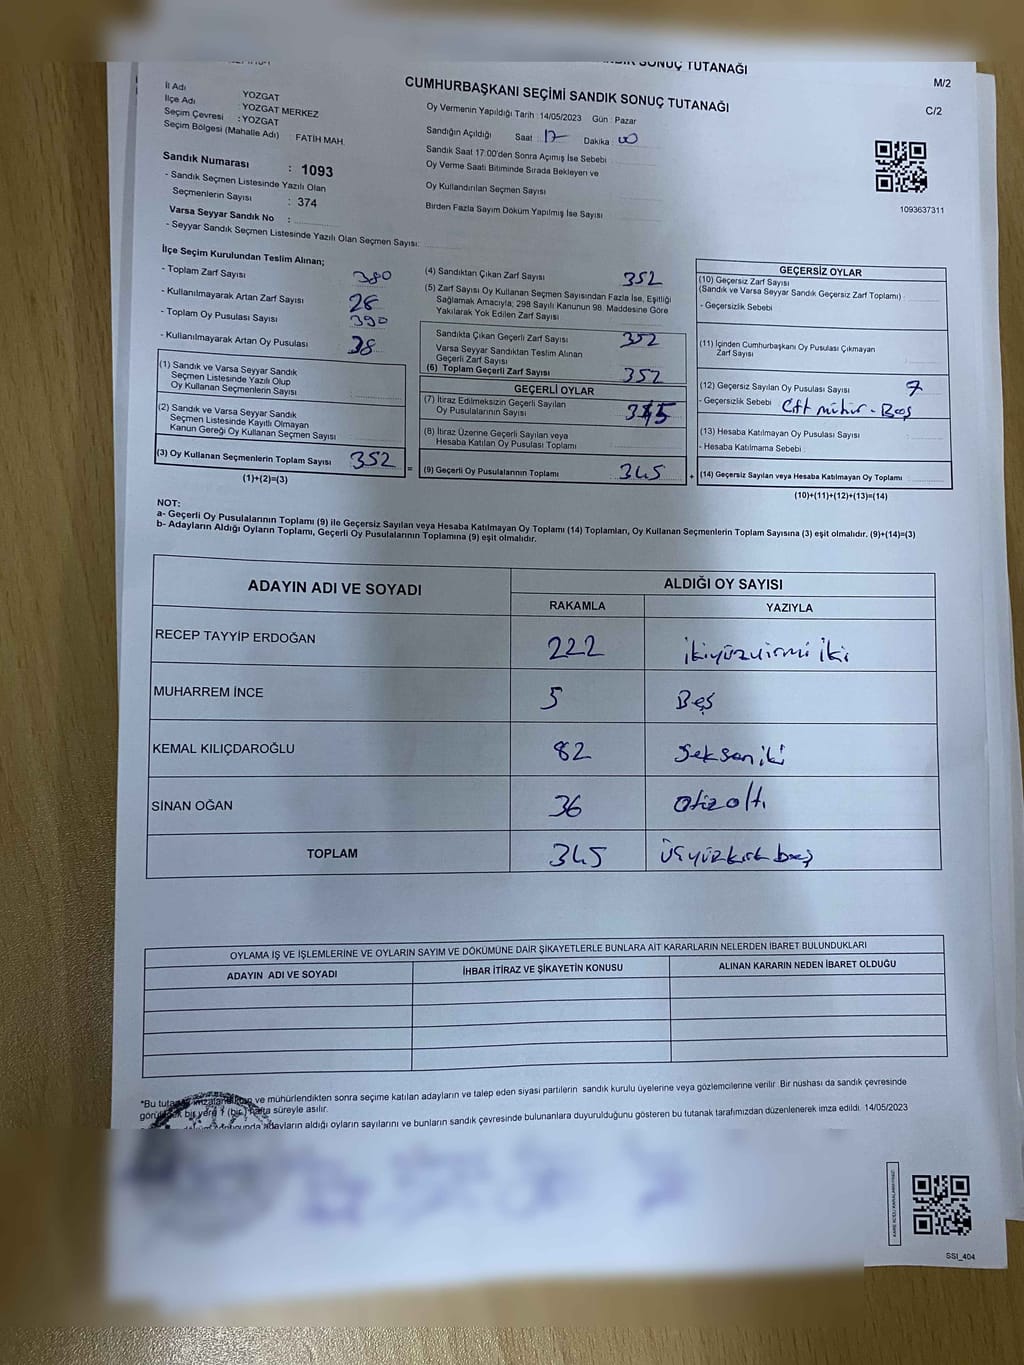 SONUÇ TUTANAĞI
CUMHURBAŞKANI SEÇİMİ SANDIK SONUÇ TUTANAĞI
M/2
C/2
İl Adı YOZGAT
İlçe Adı : YOZGAT MERKEZ
Seçim Çevresi : YOZGAT
Seçim Bölgesi (Mahalle Adı) : FATİH MAH.
Sandık Numarası : 1093
- Sandık Seçmen Listesinde Yazılı Olan
Seçmenlerin Sayısı : 374
Varsa Seyyar Sandık No :
- Seyyar Sandık Seçmen Listesinde Yazılı Olan Seçmen Sayısı:
Oy Vermenin Yapıldığı Tarih : 14/05/2023 Gün : Pazar
Sandığın Açıldığı Saat : 17 Dakika : 00
Sandık Saat 17:00'den Sonra Açımış İse Sebebi
Oy Verme Saati Bitiminde Sırada Bekleyen ve
Oy Kullandırılan Seçmen Sayısı
Birden Fazla Sayım Döküm Yapılmış İse Sayısı
1093637311
İlçe Seçim Kurulundan Teslim Alınan;
- Toplam Zarf Sayısı 380
- Kullanılmayarak Artan Zarf Sayısı 28
- Toplam Oy Pusulası Sayısı 390
- Kullanılmayarak Artan Oy Pusulası 38
(1) Sandık ve Varsa Seyyar Sandık
Seçmen Listesinde Yazılı Olup
Oy Kullanan Seçmenlerin Sayısı
(2) Sandık ve Varsa Seyyar Sandık
Seçmen Listesinde Kayıtlı Olmayan
Kanun Gereği Oy Kullanan Seçmen Sayısı
(3) Oy Kullanan Seçmenlerin Toplam Sayısı 352
(1)+(2)=(3)
(4) Sandıktan Çıkan Zarf Sayısı 352
(5) Zarf Sayısı Oy Kullanan Seçmen Sayısından Fazla İse, Eşitliği
Sağlamak Amacıyla; 298 Sayılı Kanunun 98. Maddesine Göre
Yakılarak Yok Edilen Zarf Sayısı
Sandıkta Çıkan Geçerli Zarf Sayısı 352
Varsa Seyyar Sandıktan Teslim Alınan
Geçerli Zarf Sayısı
(6) Toplam Geçerli Zarf Sayısı 352
GEÇERLİ OYLAR
(7) İtiraz Edilmeksizin Geçerli Sayılan
Oy Pusulalarının Sayısı 345
(8) İtiraz Üzerine Geçerli Sayılan veya
Hesaba Katılan Oy Pusulası Toplamı
= (9) Geçerli Oy Pusulalarının Toplamı 345 +
GEÇERSİZ OYLAR
(10) Geçersiz Zarf Sayısı
(Sandık ve Varsa Seyyar Sandık Geçersiz Zarf Toplamı) :
- Geçersizlik Sebebi
(11) İçinden Cumhurbaşkanı Oy Pusulası Çıkmayan
Zarf Sayısı
(12) Geçersiz Sayılan Oy Pusulası Sayısı 7
- Geçersizlik Sebebi Çift mühür - Boş
(13) Hesaba Katılmayan Oy Pusulası Sayısı
- Hesaba Katılmama Sebebi :
(14) Geçersiz Sayılan veya Hesaba Katılmayan Oy Toplamı
(10)+(11)+(12)+(13)=(14)
NOT:
a- Geçerli Oy Pusulalarının Toplamı (9) ile Geçersiz Sayılan veya Hesaba Katılmayan Oy Toplamı (14) Toplamları, Oy Kullanan Seçmenlerin Toplam Sayısına (3) eşit olmalıdır. (9)+(14)=(3)
b- Adayların Aldığı Oyların Toplamı, Geçerli Oy Pusulalarının Toplamına (9) eşit olmalıdır.
ADAYIN ADI VE SOYADI ALDIĞI OY SAYISI
RAKAMLA YAZIYLA
RECEP TAYYİP ERDOĞAN 222 ikiyüzyirmi iki
MUHARREM İNCE 5 Beş
KEMAL KILIÇDAROĞLU 82 Seksen iki
SİNAN OĞAN 36 Otuz altı
TOPLAM 345 üçyüzkırk beş
OYLAMA İŞ VE İŞLEMLERİNE VE OYLARIN SAYIM VE DÖKÜMÜNE DAİR ŞİKAYETLERLE BUNLARA AİT KARARLARIN NELERDEN İBARET BULUNDUKLARI
ADAYIN ADI VE SOYADI İHBAR İTİRAZ VE ŞİKAYETİN KONUSU ALINAN KARARIN NEDEN İBARET OLDUĞU
*Bu ve mühürlendikten sonra seçime katılan adayların ve talep eden siyasi partilerin sandık kurulu üyelerine veya gözlemcilerine verilir. Bir nüshası da sandık çevresinde
bir yere 1 (bir) hafta süreyle asılır.
adayların aldığı oyların sayılarını ve bunların sandık çevresinde bulunanlara duyurulduğunu gösteren bu tutanak tarafımızdan düzenlenerek imza edildi. 14/05/2023
SSI_404